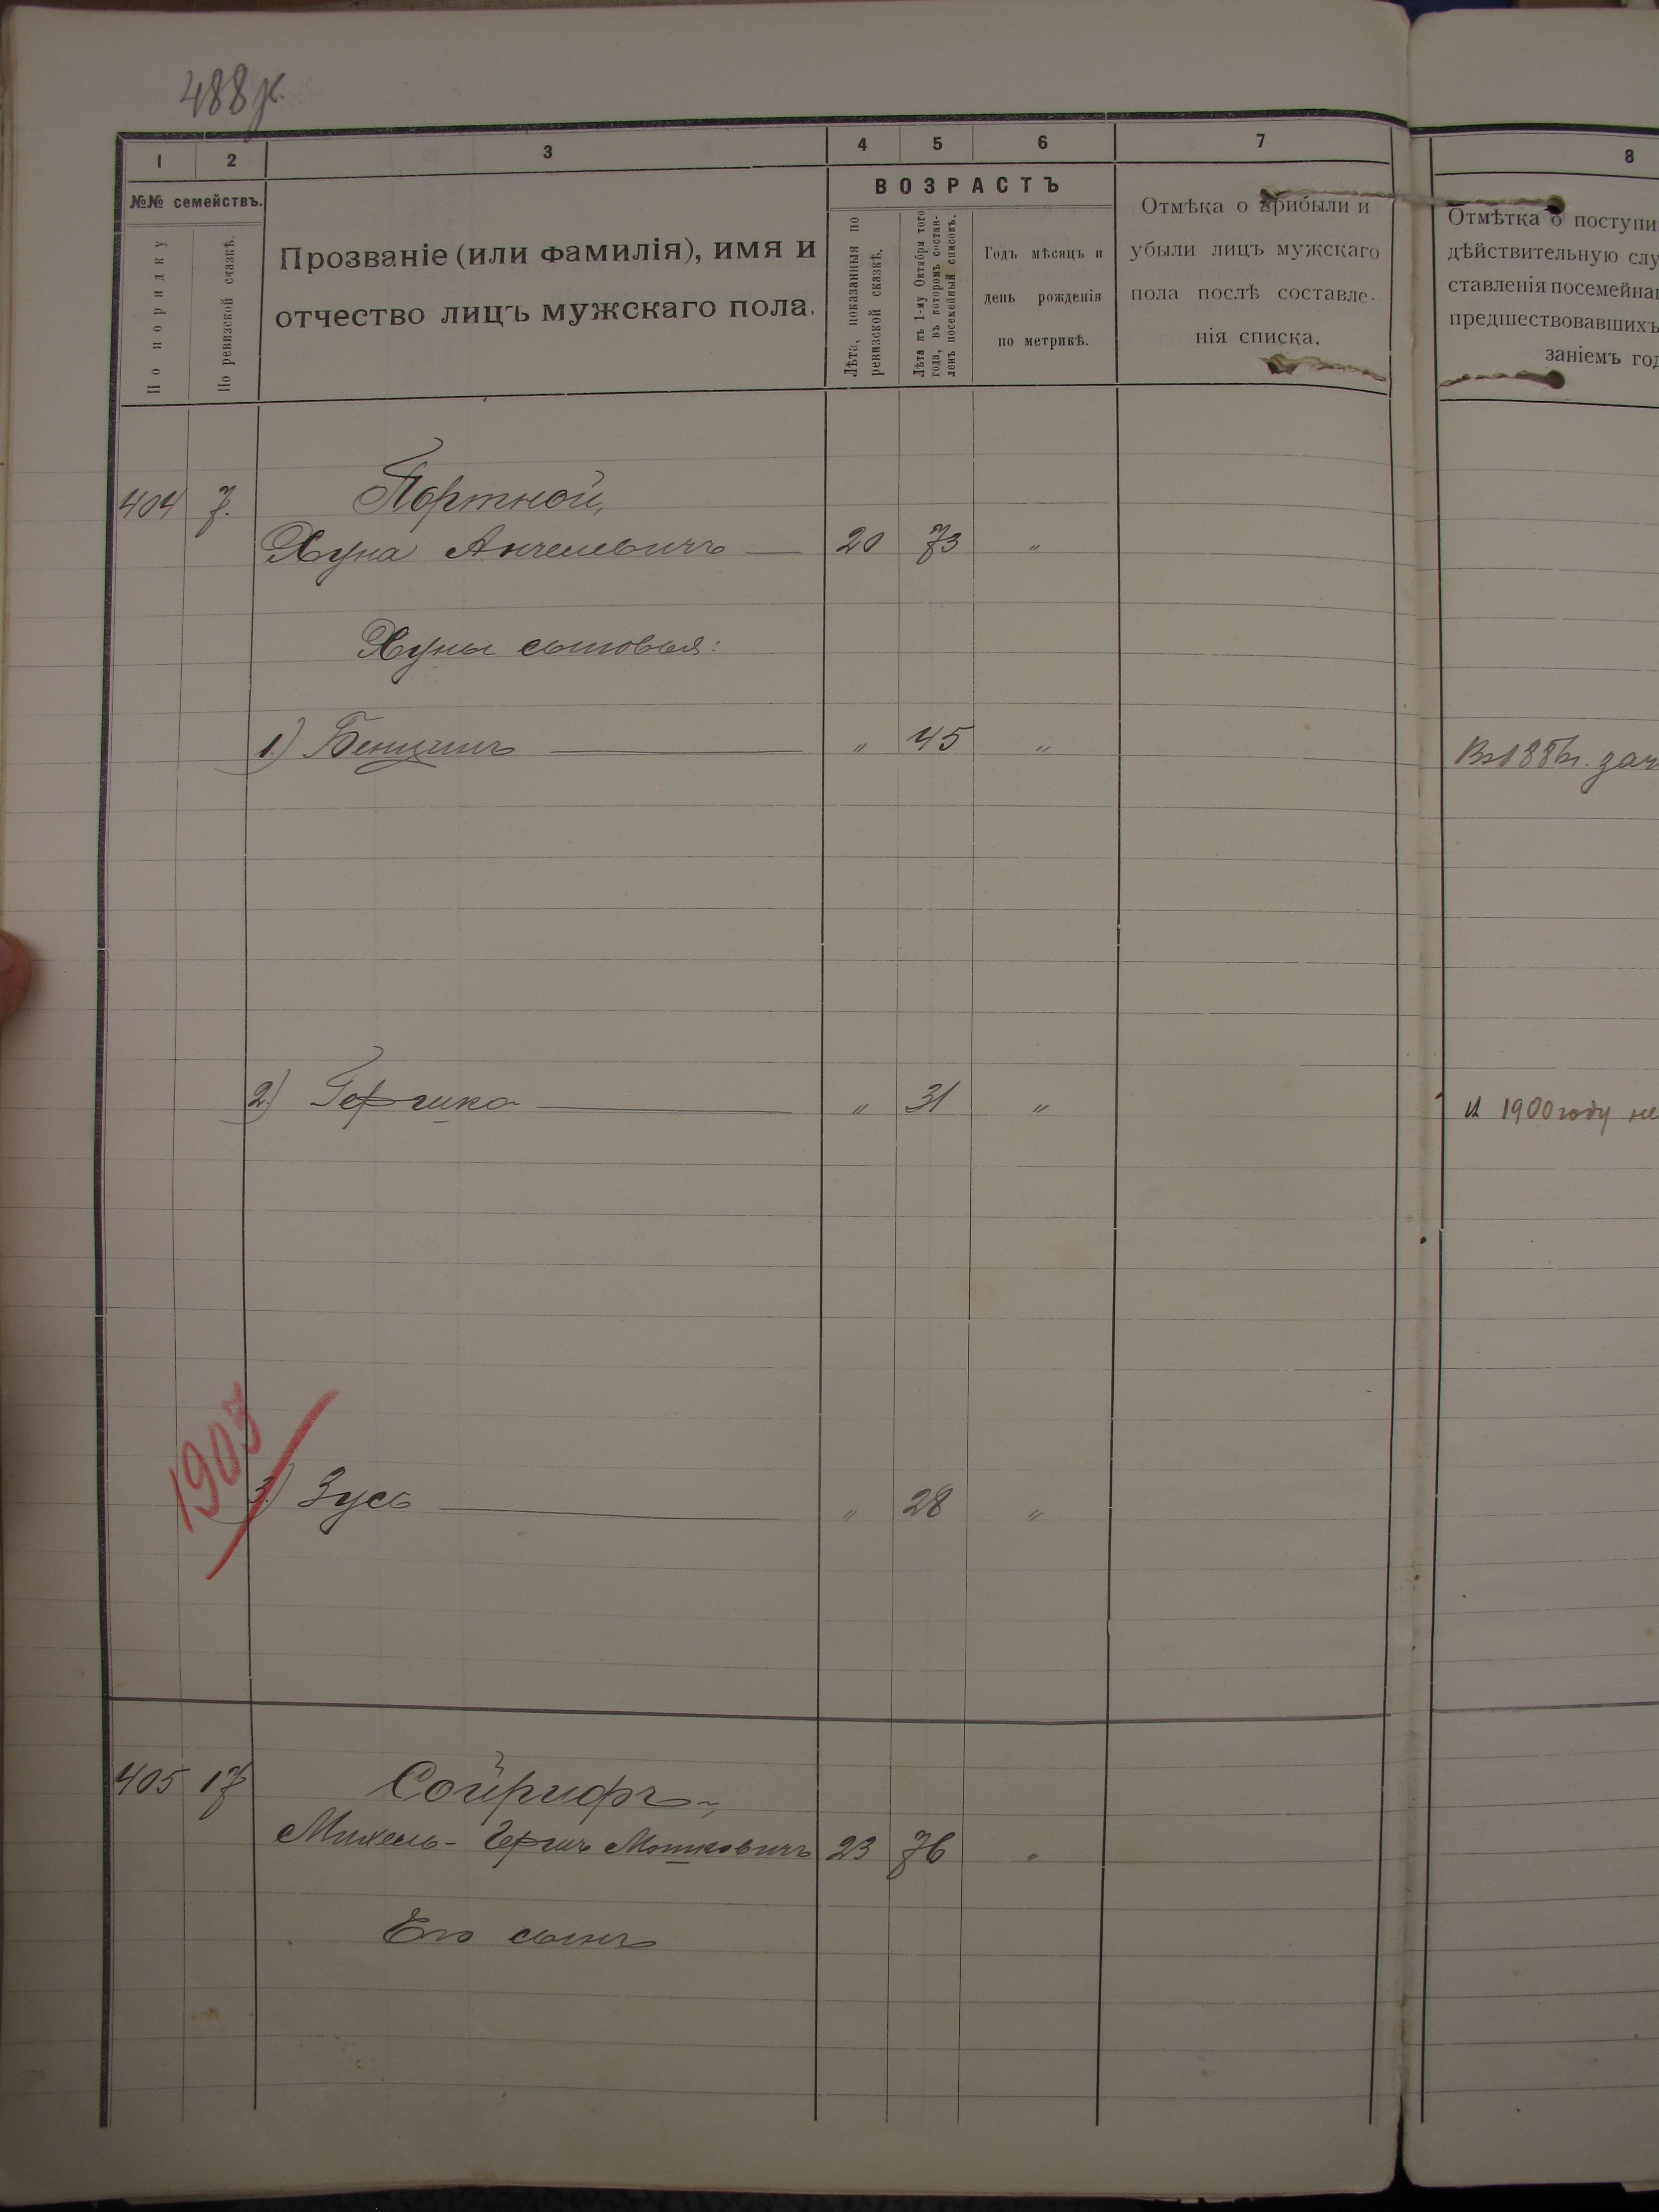 488
1 2 3 4 5 6 7
№№ семействъ.
По порядку
По ревизской сказкѣ.
Прозваніе (или фамилія), имя и
отчество лицъ мужскаго пола.
ВОЗРАСТЪ
Лѣта, показанныя по
ревизской сказкѣ.
Лѣта къ 1-му Октября того
года, въ которомъ состав-
ленъ посемейный списокъ.
Годъ мѣсяцъ и
день рожденія
по метрикѣ.
Отмѣка о прибыли и
убыли лицъ мужскаго
пола послѣ составле-
нія списка.
8
Отмѣтка о поступи
дѣйствительную слу
ставленія посемейна
предшествовавшихъ
заніемъ год
404 7. Портной,
Хуна Анчелевичъ — 20 73 "
Хуны сыновья:
1) Бенционъ — " 45 "
2) Гершко — " 31 "
и 1900 году не
1903
3) Зусь — " 28 "
405 17 Сойрифъ,
Михель-Гершъ Мошковичъ 23 76 "
Его сынъ